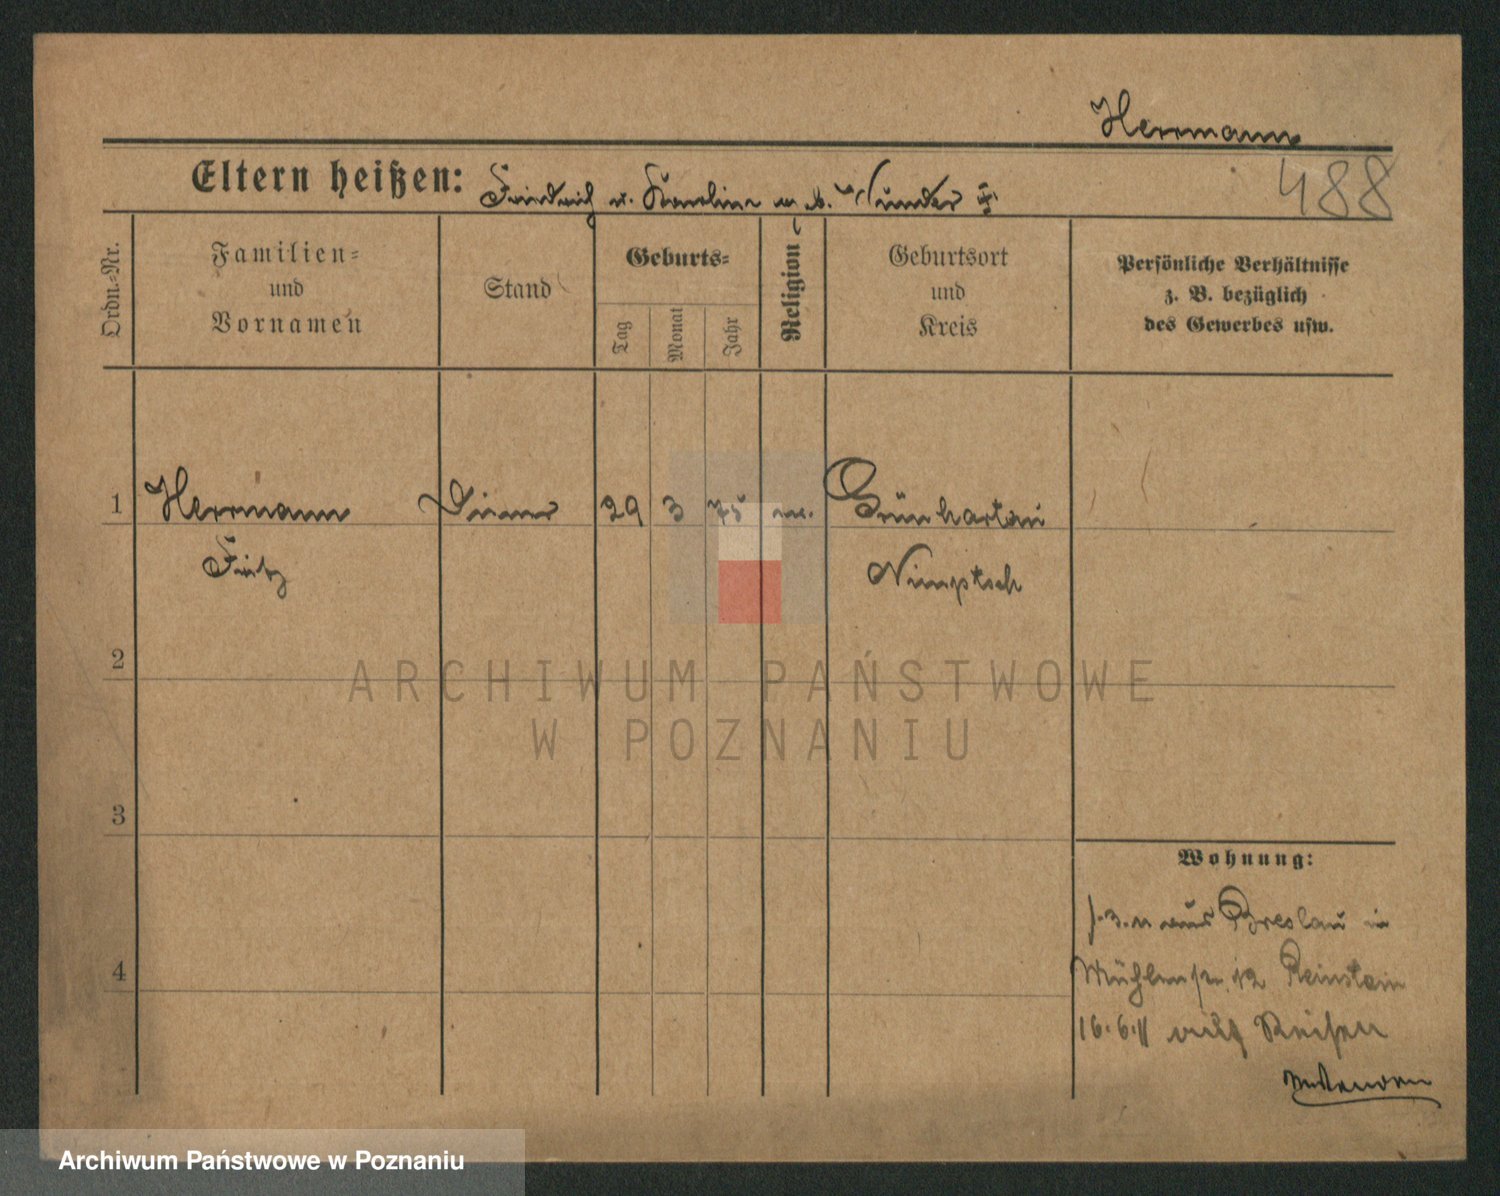 Herrmann
488
Eltern heißen: Friedrich u. Karoline
Ordn.-Nr.
Familien-
und
Vornamen
Stand
Geburts-
Tag
Monat
Jahr
Religion
Geburtsort
und
Kreis
Persönliche Verhältnisse
z. B. bezüglich
des Gewerbes usw.
1 Herrmann Diener 29 3 75 Grünhartau
Fritz Nimptsch
2
3
4
Wohnung:
aus Breslau in
Mühlenstr. 12
16.6.11 auf Reisen
ARCHIWUM PAŃSTWOWE
W POZNANIU
Archiwum Państwowe w Poznaniu